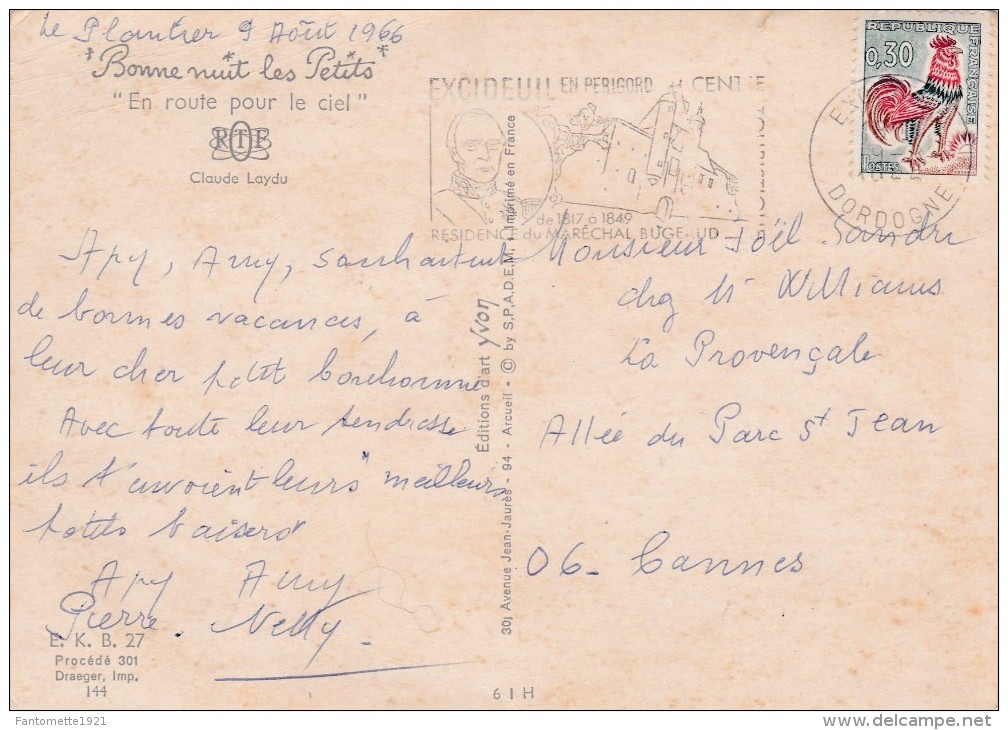 Le Plantier 9 Août 1966
Bonne nuit les Petits
"En route pour le ciel"
RTF
Claude Laydu
Apy, Amy, souhaitent
de bonnes vacances, à
leur cher petit bonhomme
Avec toute leur tendresse
ils t'envoient leurs meilleurs
petits baisers
Apy Amy
Pierre. Nelly.
E. K. B. 27
Procédé 301
Draeger, Imp.
144
Éditions d'art Yvon
30, Avenue Jean-Jaurès - 94 - Arcueil - © by S.P.A.D.E.M. Imprimé en France
6 1 H
EXCIDEUIL EN PERIGORD
CENTRE
de 1817 à 1849
RESIDENCE du MARÉCHAL BUGEAUD
REPUBLIQUE FRANÇAISE
0,30
POSTES
DORDOGNE
Monsieur Joël Sandri
chez Mr Williams
La Provençale
Allée du Parc St Jean
06- Cannes
Fantomette1921
delcampe.net